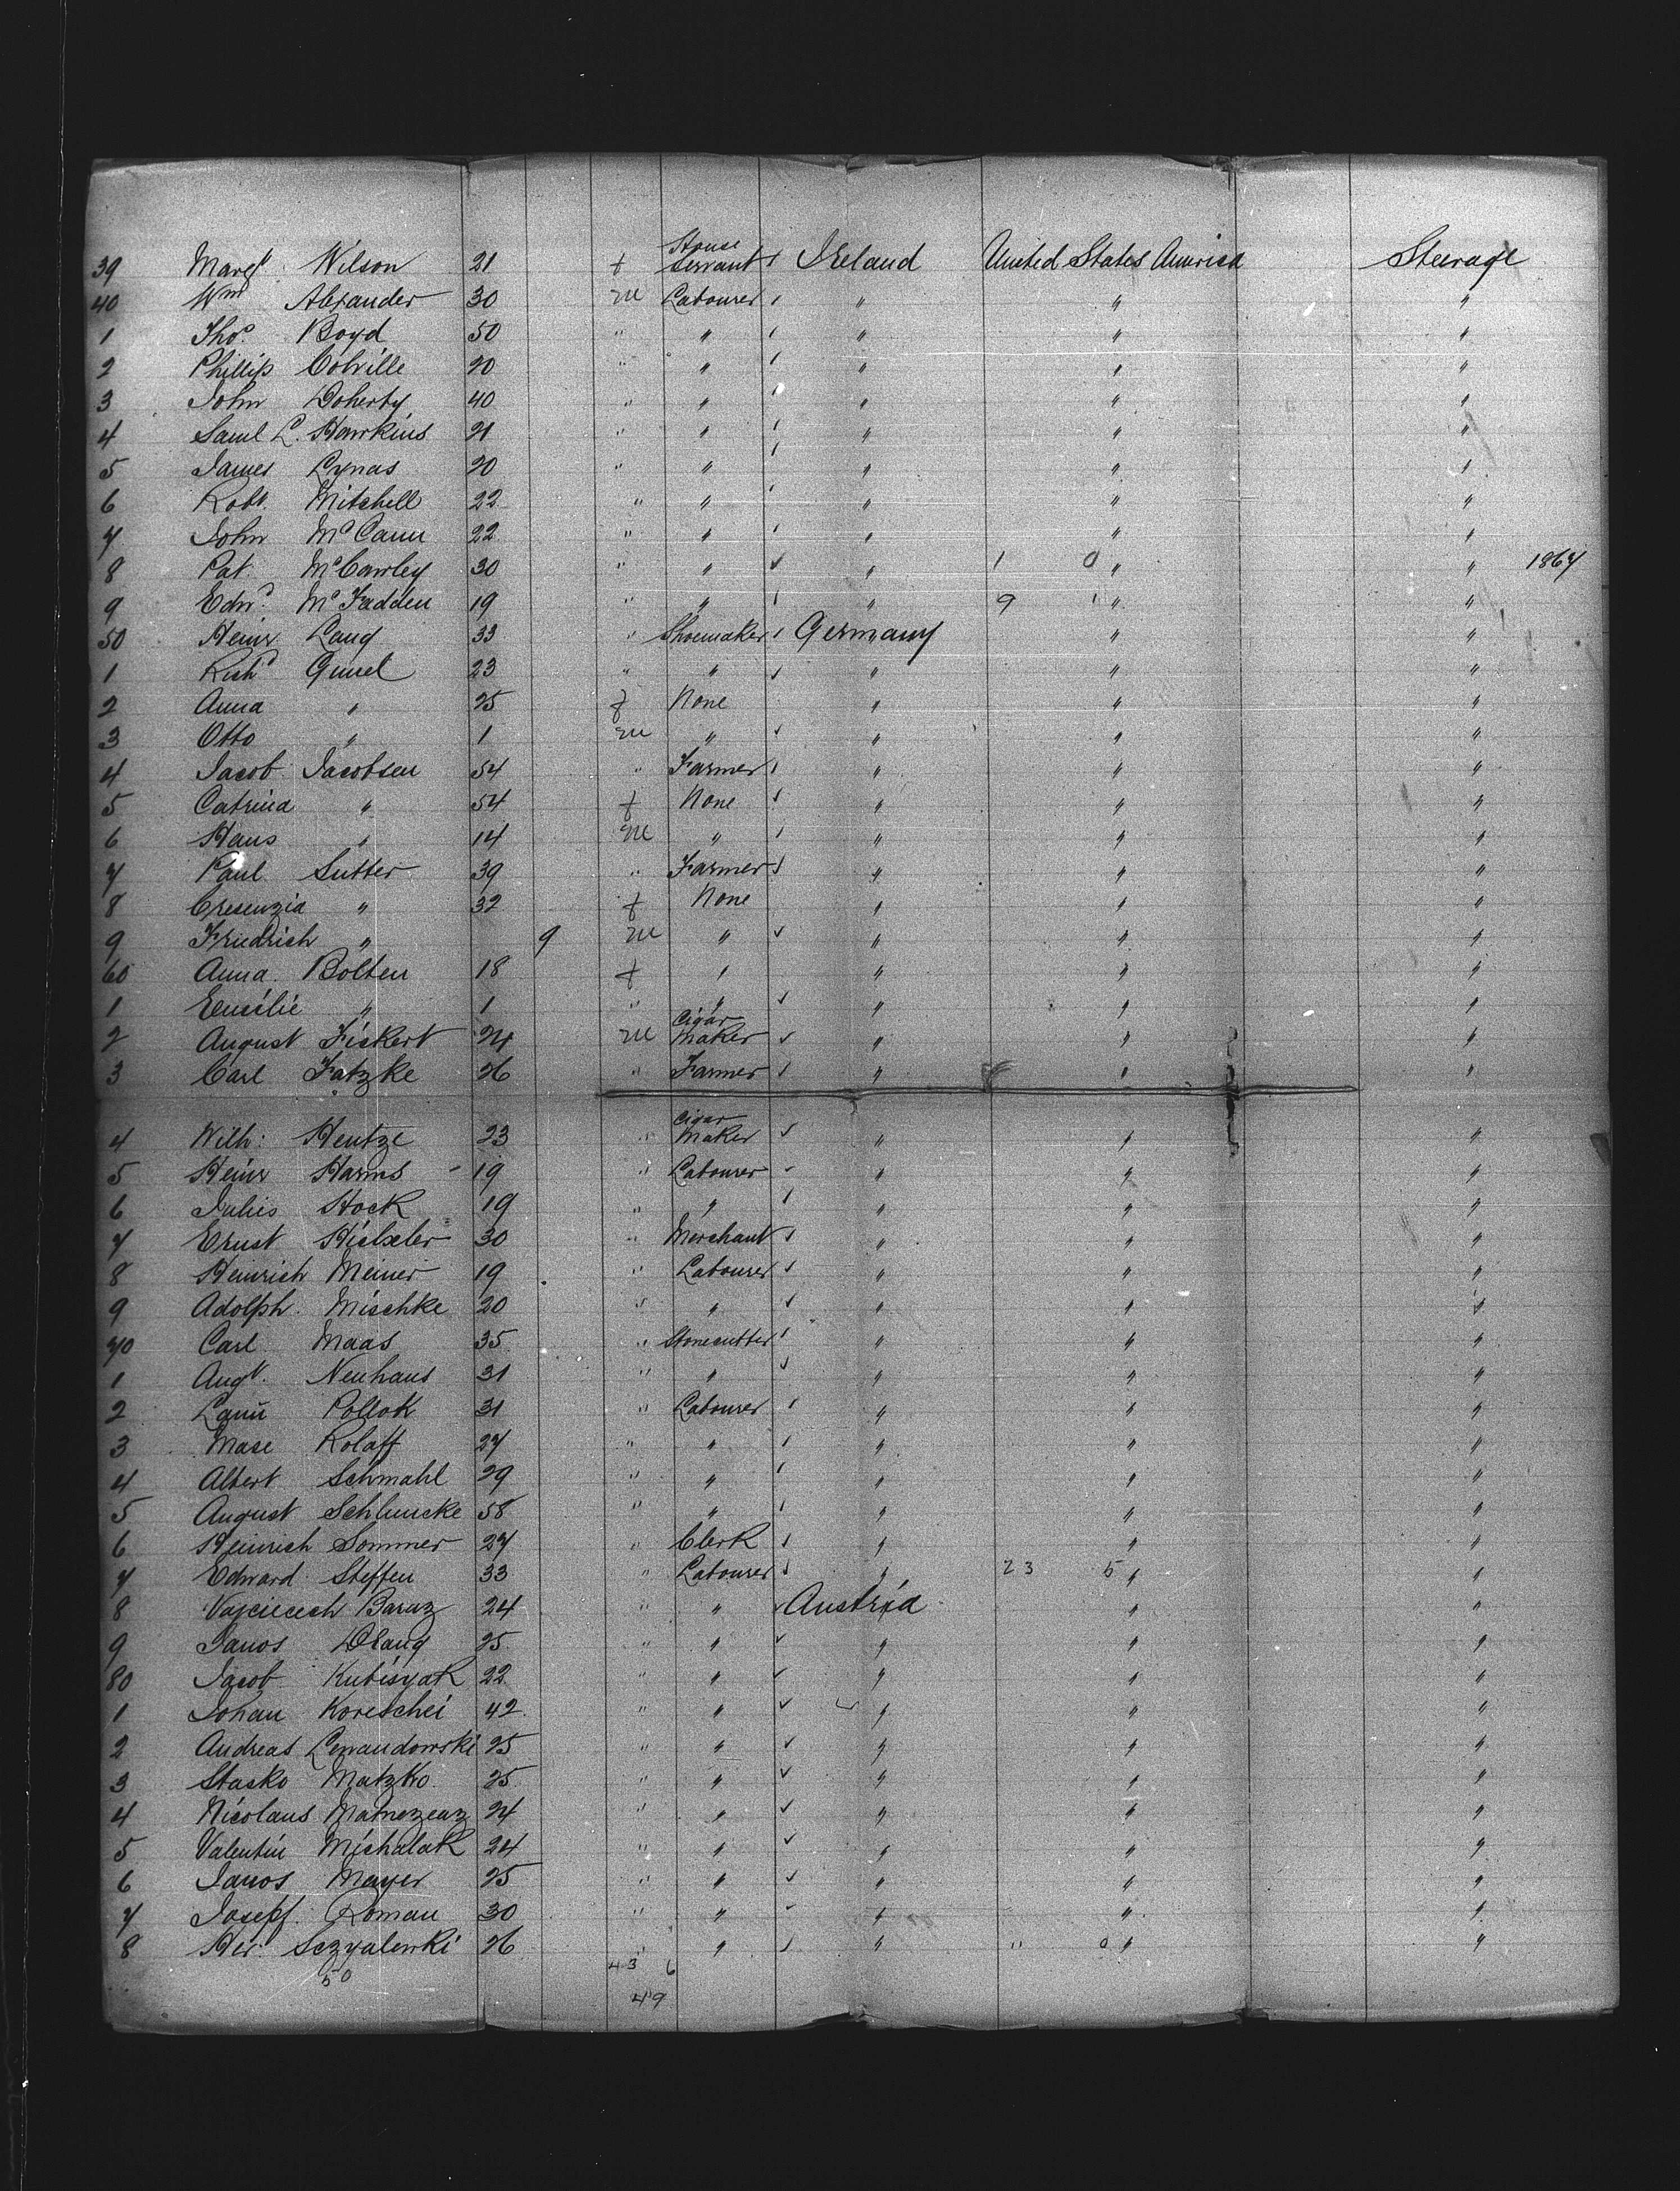 39 Margt Wilson 21 f House Servant Ireland United States America Steerage
40 Wm Alexander 30 m Labourer " " "
1 Thos. Boyd 50 " " " " "
2 Phillip Colville 20 " " " " "
3 John Doherty 40 " " " " "
4 Saml L. Hawkins 21 " " " " "
5 James Lynas 20 " " " " "
6 Robt. Mitchell 22 " " " " "
7 John McCann 22 " " " " "
8 Pat. McCawley 30 " " " 1 0 " " 1867
9 Edwd. McFadden 19 " " " 9 1 " "
50 Heinr Lang 33 " Shoemaker Germany " "
1 Richd 23 " " " " "
2 Anna " 25 f None " " "
3 Otto " 1 m " " " "
4 Jacob Jacobsen 54 " Farmer " " "
5 Catrina " 54 f None " " "
6 Hans " 14 m " " " "
7 Paul Sutter 39 " Farmer " " "
8 Cresenzia " 32 f None " " "
9 Friedrich " 9 m " " " "
60 Anna Bolten 18 f " " " "
1 Emilie " 1 " " " " "
2 August Fickert 24 m Cigar Maker " " "
3 Carl Fatzke 26 " Farmer " " "
4 Wilh: Hentze 23 " Cigar Maker " " "
5 Heinr Harms 19 " Labourer " " "
6 Julius Hock 19 " " " " "
7 Ernst 30 " Merchant " " "
8 Heinrich Meiner 19 " Labourer " " "
9 Adolph Mischke 20 " " " " "
70 Carl Maas 35 " Stonecutter " " "
1 Augt. Neuhaus 31 " " " " "
2 Pollok 31 " Labourer " " "
3 Mase Rolaff 27 " " " " "
4 Albert Schmahl 29 " " " " "
5 August Schlumcke 58 " " " " "
6 Heinrich Sommer 27 " Clerk " " "
7 Edward Steffen 33 " Labourer " 23 5 " "
8 Vajciecech Baraz 24 " " Austria " "
9 Janos 25 " " " " "
80 Jacob Kubisyak 22 " " " " "
1 Johan Koreschei 42 " " " " "
2 Andreas Lewandowski 25 " " " " "
3 Stasko Matzko 25 " " " " "
4 Nicolaus 24 " " " " "
5 Valentin Michalak 24 " " " " "
6 Janos Mayer 25 " " " " "
7 Josepf Roman 30 " " " " "
8 26 " " " " 0 " "
50 43 6
49